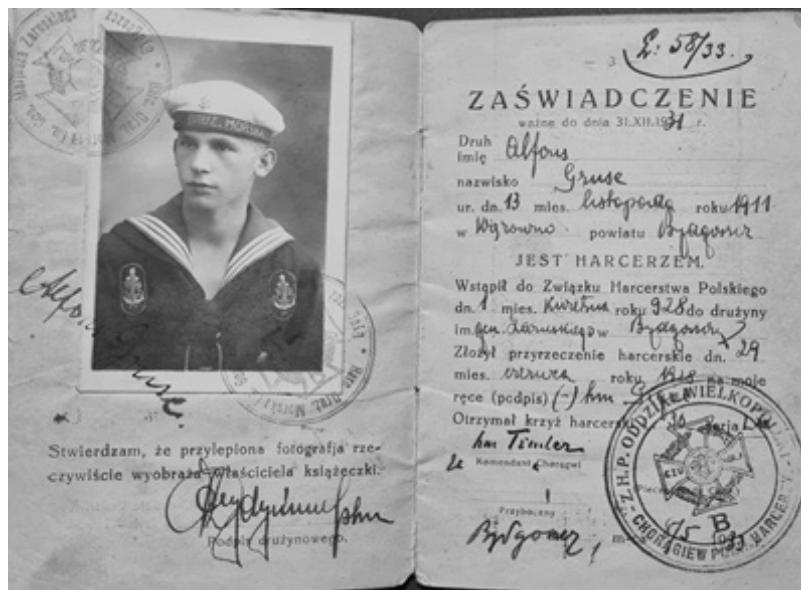 DRUŻ. MORSKA
Alfons Gruse.
Stwierdzam, że przylepiona fotografja rze-
czywiście wyobraża właściciela książeczki.
Podpis drużynowego.
L: 58/33.
— 3
ZAŚWIADCZENIE
ważne do dnia 31.XII.1931 r.
Druh
imię Alfons
nazwisko Gruse
ur. dn. 13 mies. listopada roku 1911
w powiatu Bydgoszcz
JEST HARCERZEM.
Wstąpił do Związku Harcerstwa Polskiego
dn. 1 mies. kwietnia roku 928 do drużyny
im. gen. Zaruskiego w Bydgoszczy
Złożył przyrzeczenie harcerskie dn. 29
mies. czerwca roku 1928 na moje
ręce (podpis) (-) hm
Otrzymał krzyż harcerski serja
hm Timler
Komendant Chorągwi
Przyboczny
Bydgoszcz,
Z.H.P. ODDZIAŁ WIELKOPOLSKI
CHORĄGIEW POZ. HARCERZY
B